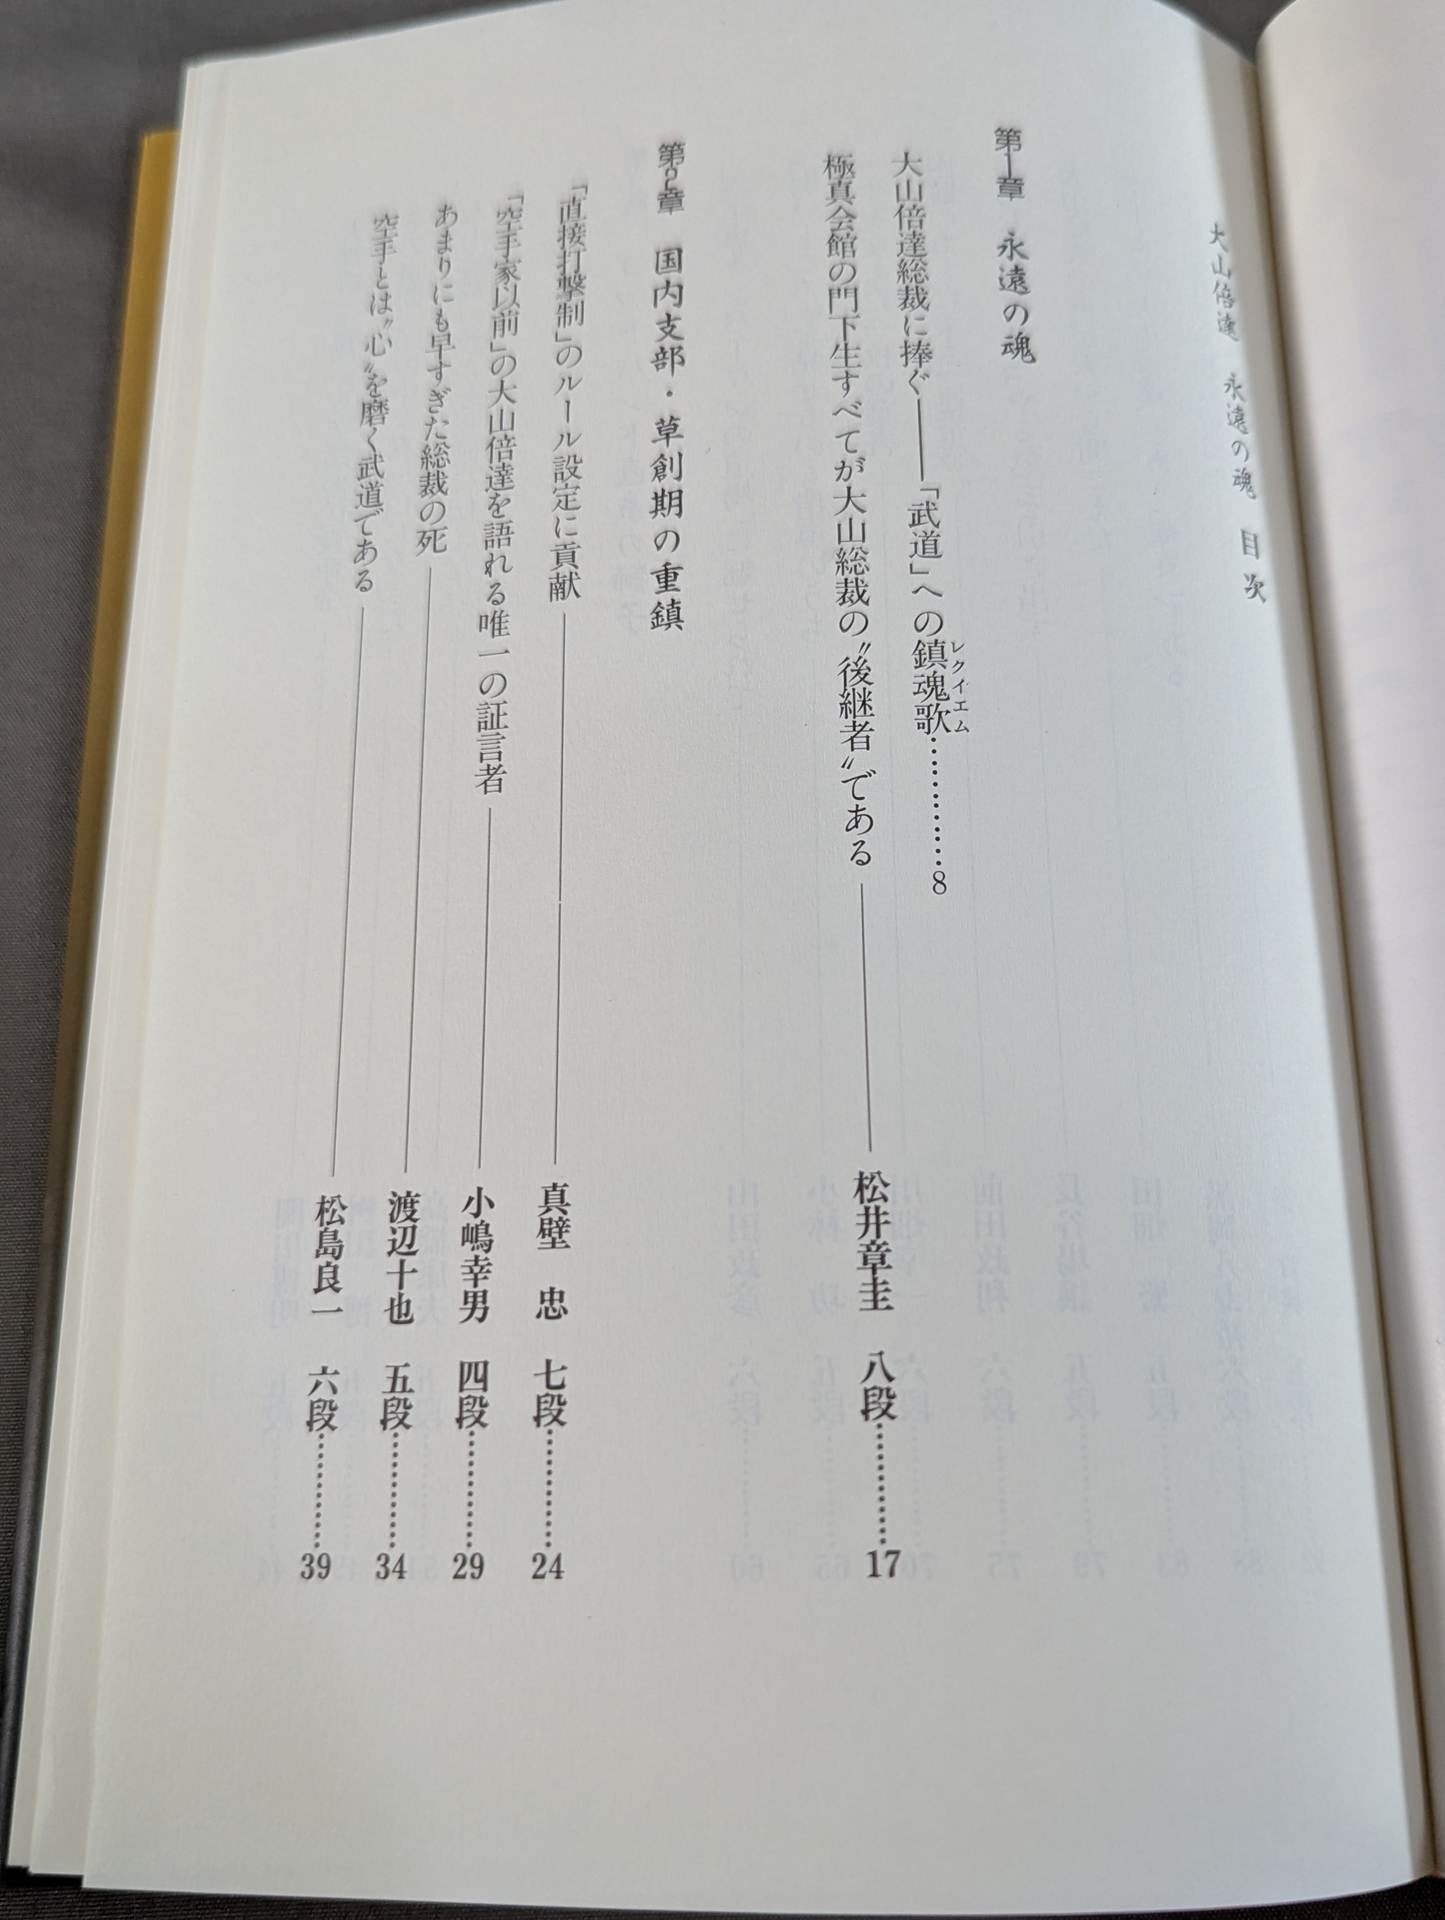 大山倍達 永遠の魂 目次
第1章 永遠の魂
大山倍達総裁に捧ぐ――「武道」への鎮魂歌…………8
レクイエム
極真会館の門下生すべてが大山総裁の〝後継者〟である――松井章圭 八段…………17
第2章 国内支部・草創期の重鎮
「直接打撃制」のルール設定に貢献――真壁 忠 七段…………24
「空手家以前」の大山倍達を語れる唯一の証言者――小嶋幸男 四段…………29
あまりにも早すぎた総裁の死――渡辺十也 五段…………34
空手とは〝心〟を磨く武道である――松島良一 六段…………39